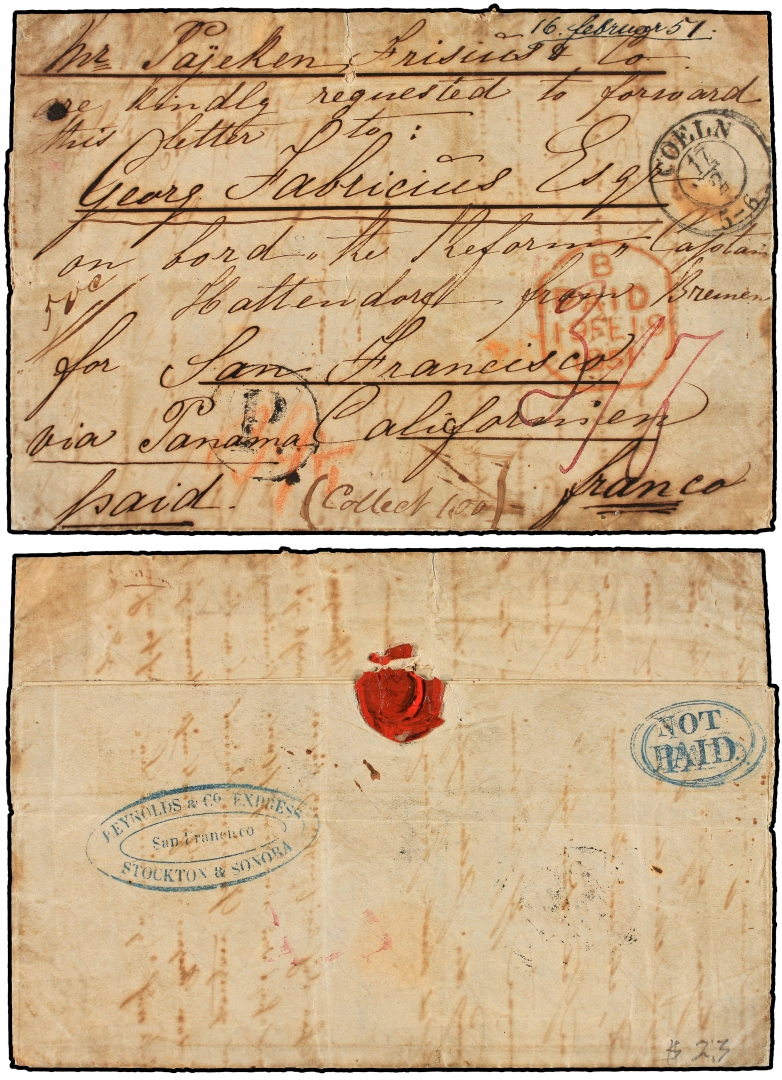 16. februar 51.
Mr Päyeken Frisius & Co.
are kindly requested to forward
this letter to:
COELN
17
5-6
Georg Fabricius Esqr
on bord „the Reform„ Captain
50c
Hattendorf from Bremen
B
PAID
19FE19
1851
for San Francisco
P.
via Panama Californien
paid. (Collect 1,00) franco
NOT
PAID
REYNOLDS & Co. EXPRESS
San Francisco
STOCKTON & SONORA
$ 23